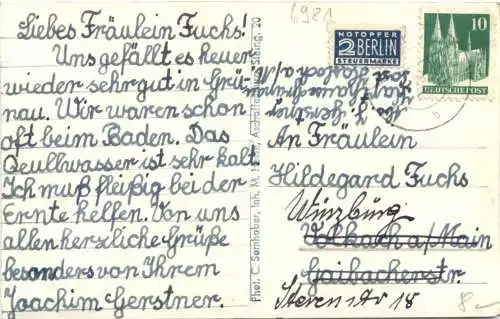 Liebes Fräulein Fuchs!
Uns gefällt es heuer
wieder sehr gut in Grü-
nau. Wir waren schon
oft beim Baden. Das
Qeullwasser ist sehr kalt.
Ich muß fleißig bei der
Ernte helfen. Von uns
allen herzliche Grüße
besonders von Ihrem
Joachim Gerstner.
698A
NOTOPFER
2 BERLIN
STEUERMARKE
10
DEUTSCHE POST
b
J. Gerstner
Karlstadt a/M
Post
Phot. C. Semhaber, Inh. M.
20
An Fräulein
Hildegard Fuchs
Würzburg
Volkach a/Main
Gaibacherstr.
Sterenstr 18
8-